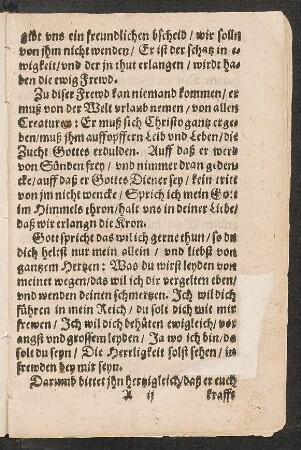 gibt vns ein freundlichen bscheid / wir solln
von jhm nicht wenden / Er ist der schatz in e-
wigkeit / vnd der jn thut erlangen / wirdt ha-
ben die ewig Frewd.
Zu diser Frewd kan niemand kommen / er
muß von der Welt vrlaub nemen / von allen
Creaturen: Er muß sich Christo gantz erge-
ben / muß jhm auffopffern Leib vnd Leben / die
Zucht Gottes erdulden. Auff daß er werd
von Sünden frey / vnd nimmer dran geden-
cke / auff daß er Gottes Diener sey / kein tritt
von jm nicht wencke / Sprich ich mein Gott
im Himmels thron / halt vns in deiner Liebe /
daß wir erlangn die Kron.
Gott spricht das wil ich gerne thun / so du
dich heltst nur mein allein / vnd liebst von
gantzem Hertzen: Was du wirst leyden von
meinet wegen / das wil ich dir vergelten eben /
vnd wenden deinen schmertzen. Ich wil dich
führen in mein Reich / du solt dich mit mir
frewen / Ich wil dich behüten ewigleich / vor
angst vnd grossem leyden / Ja wo ich bin / da
solt du seyn / Die Herrligkeit solst sehen / in
frewden bey mir seyn.
Darumb bittet jhn hertzigleich / daß er euch
X ij krafft